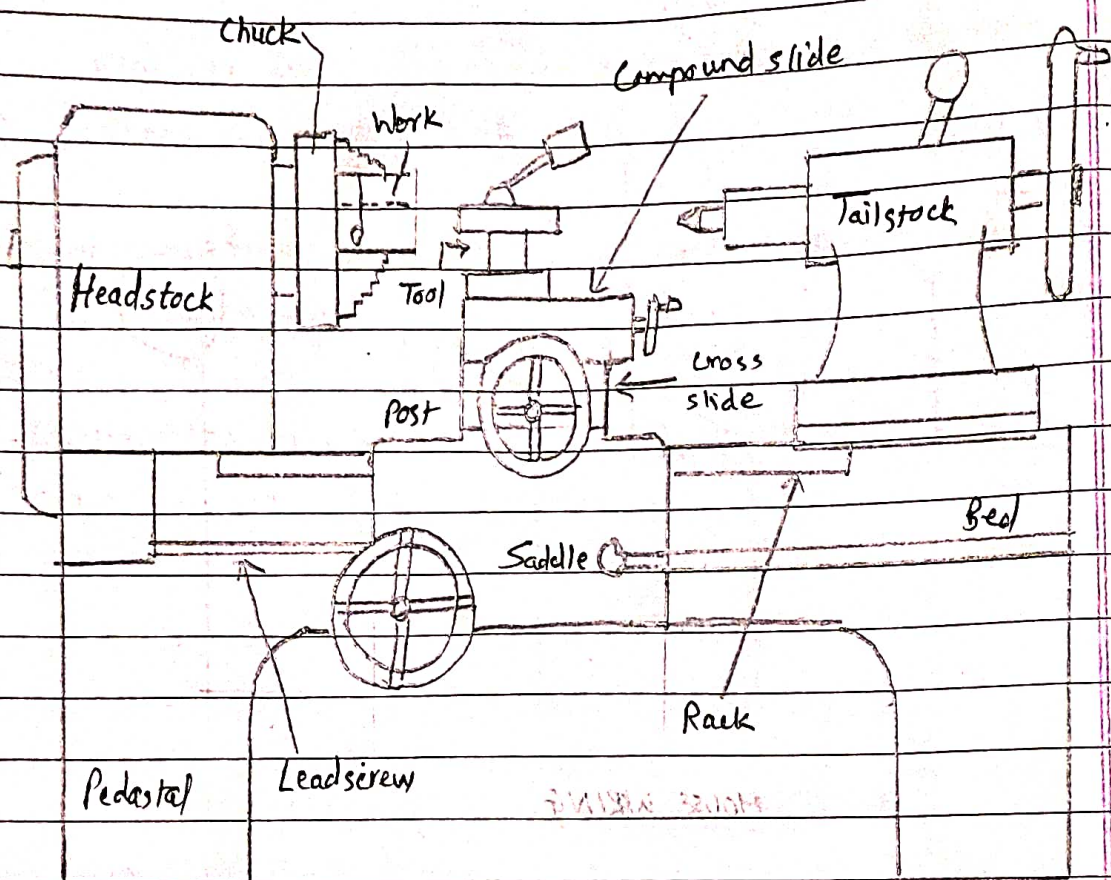 Chuck
Compound slide
Work
Tailstock
Headstock
Tool
cross
slide
Post
Bed
Saddle
Rack
Leadscrew
Pedastal